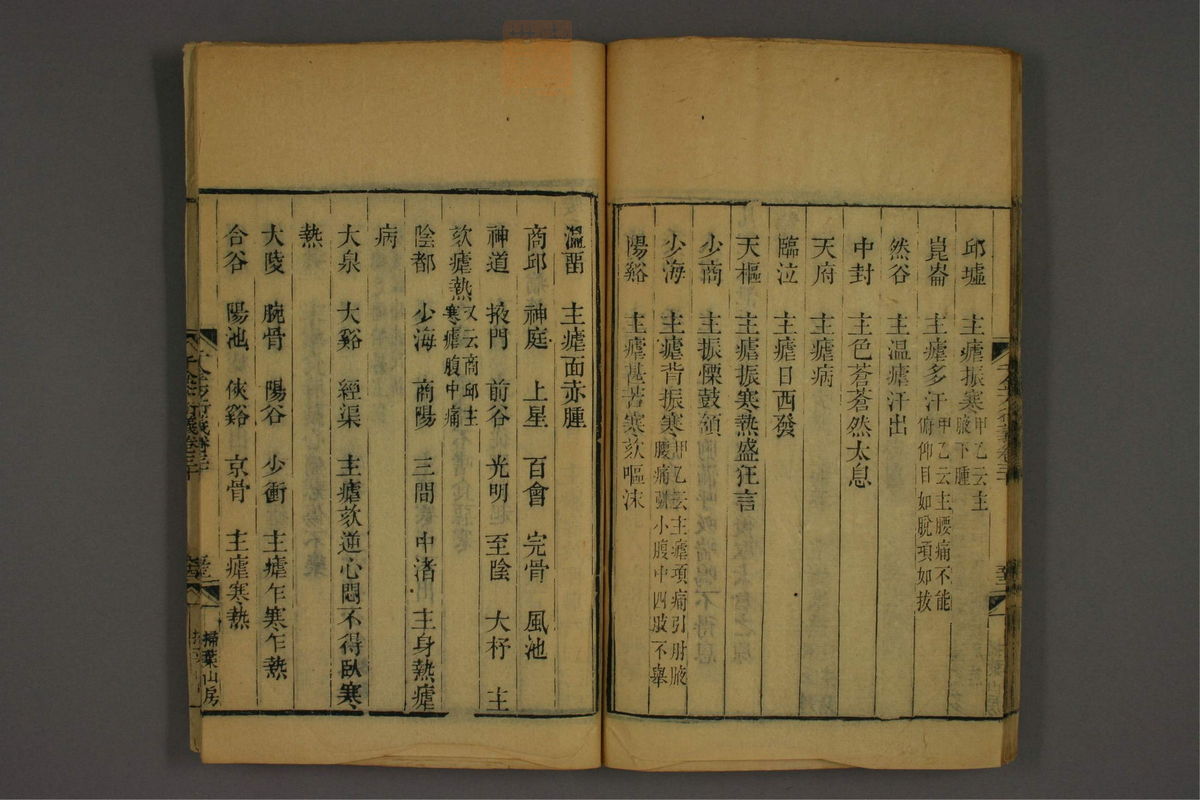 邱墟 主瘧振寒甲乙云主腋下腫
崑崙 主瘧多汗甲乙云主腰痛不能俯仰目如脫項如拔
然谷 主温瘧汗出
中封 主色蒼蒼然太息
天府 主瘧病
臨泣 主瘧日西發
天樞 主瘧振寒熱盛狂言
少商 主振慄鼓頷
少海 主瘧背振寒甲乙云主瘧項痛引肘腋腰痛彊小腹中四肢不舉
陽谿 主瘧甚苦寒欬嘔沫
温畱 主瘧面赤腫
商邱 神庭 上星 百會 完骨 風池
神道 掖門 前谷 光明 至陰 大杼 主
欬瘧熱又云商邱主寒瘧腹中痛
陰都 少海 商陽 三間 中渚 主身熱瘧
病
大泉 大谿 經渠 主瘧欬逆心悶不得臥寒
熱
大陵 腕骨 陽谷 少衝 主瘧乍寒乍熱
合谷 陽池 俠谿 京骨 主瘧寒熱
掃葉山房